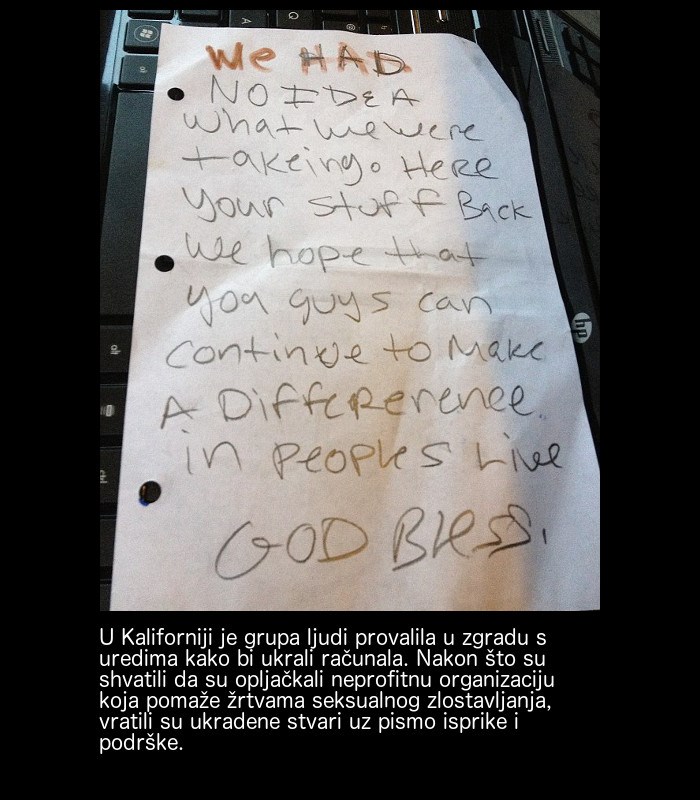 We HAD
NO IDEA
what we were
takeing. Here
your stuff Back
We hope that
you guys can
continue to Make
A Differerence.
in peoples Live
GOD Bless.
hp
alt
ctrl
U Kaliforniji je grupa ljudi provalila u zgradu s
uredima kako bi ukrali računala. Nakon što su
shvatili da su opljačkali neprofitnu organizaciju
koja pomaže žrtvama seksualnog zlostavljanja,
vratili su ukradene stvari uz pismo isprike i
podrške.